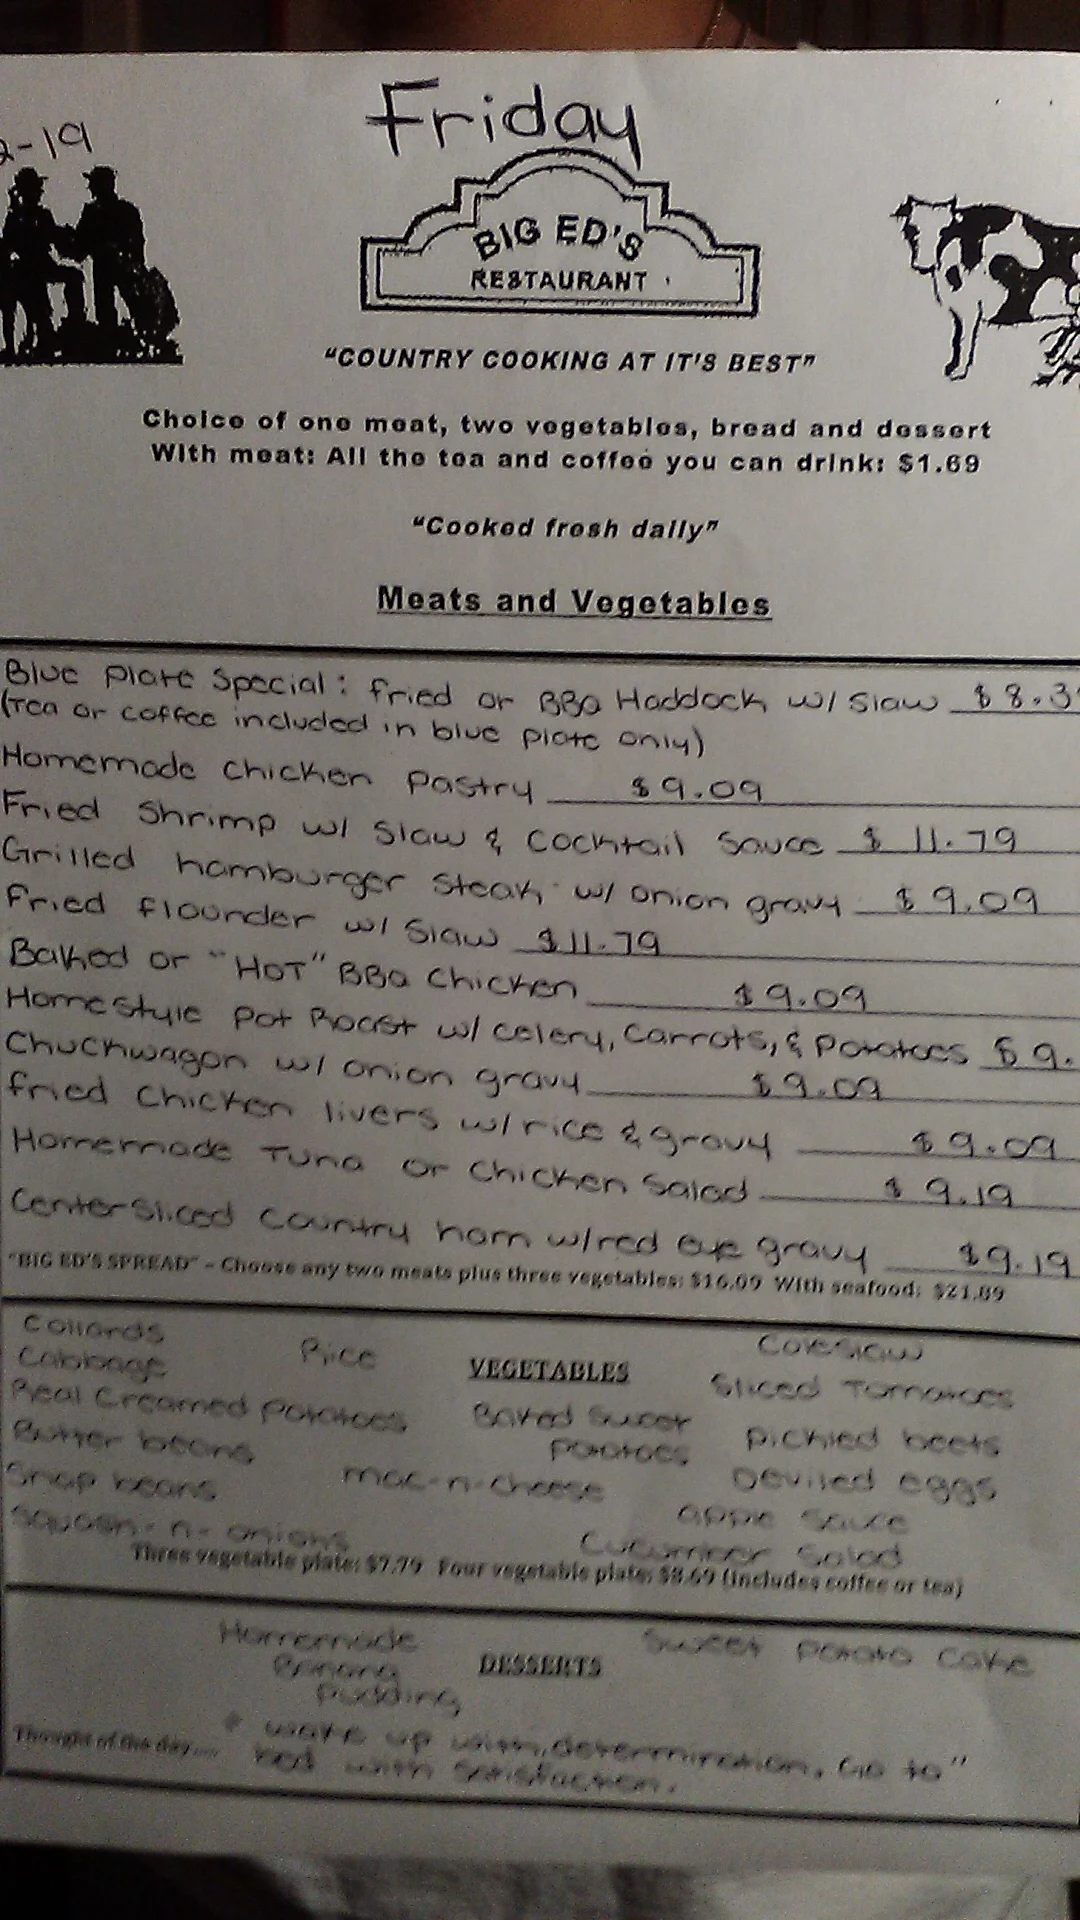 2-19
Friday
BIG ED'S
RESTAURANT
"COUNTRY COOKING AT IT'S BEST"
Choice of one meat, two vegetables, bread and dessert
With meat: All the tea and coffee you can drink: $1.69
"Cooked fresh daily"
Meats and Vegetables
Blue Plate Special: fried or BBQ Haddock w/ Slaw $8.3
(Tea or coffee included in blue plate only)
Homemade Chicken Pastry $9.09
Fried Shrimp w/ Slaw & Cocktail Sauce $11.79
Grilled hamburger Steak w/ onion gravy $9.09
Fried flounder w/ Slaw $11.79
Baked or "HOT" BBQ Chicken $9.09
Homestyle Pot Roast w/ Celery, Carrots, & Potatoes $9.
Chuckwagon w/ onion gravy $9.09
Fried Chicken livers w/ rice & gravy $9.09
Homemade Tuna or Chicken Salad $9.19
Center Sliced Country ham w/red eye gravy $9.19
"BIG ED'S SPREAD" - Choose any two meats plus three vegetables: $16.09 With seafood: $21.89
VEGETABLES
Collards
Cabbage
Real Creamed Potatoes
Butter beans
Snap beans
Squash-n-onions
Rice
Baked Sweet
Potatoes
mac-n-cheese
Coleslaw
Sliced Tomatoes
Pickled beets
Deviled eggs
apple Sauce
Cucumber Salad
Three vegetable plate: $7.79 Four vegetable plate: $8.69 (Includes coffee or tea)
DESSERTS
Homemade
Banana
Pudding
Sweet Potato Cake
Thought of the day.... "wake up with determination, Go to"
bed with satisfaction.